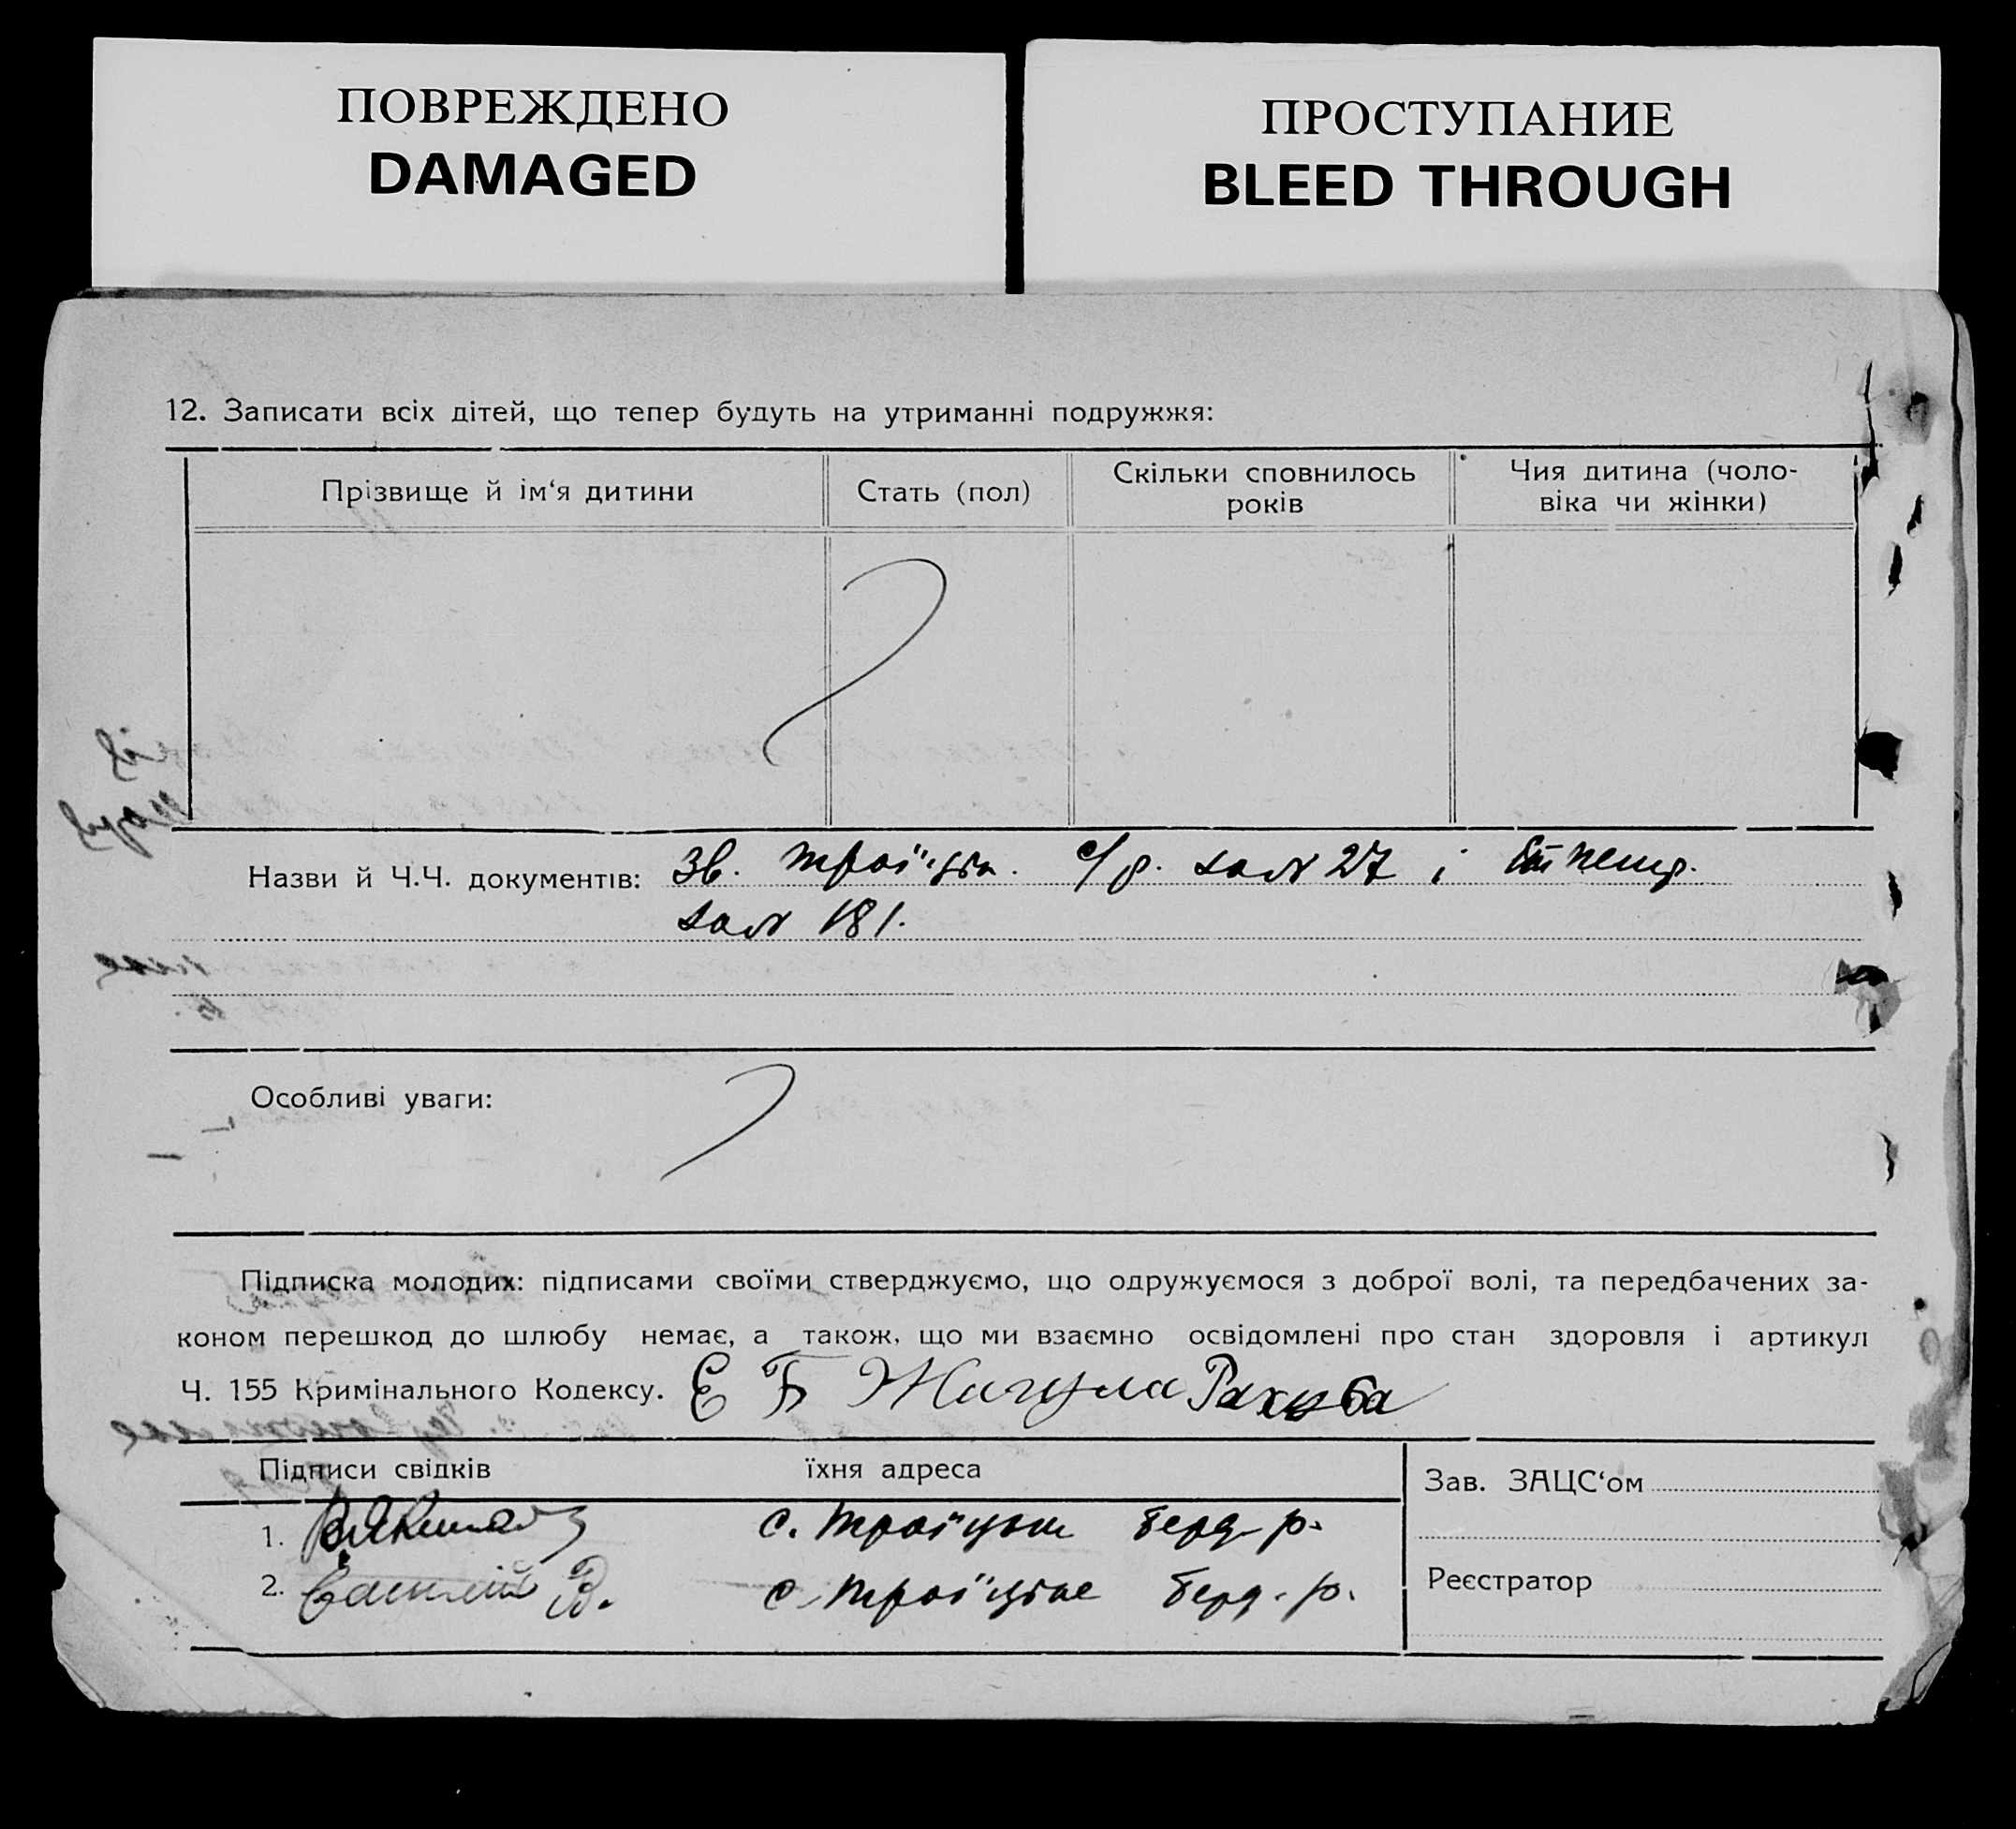 ПОВРЕЖДЕНО
DAMAGED
ПРОСТУПАНИЕ
BLEED THROUGH
12. Записати всіх дітей, що тепер будуть на утриманні подружжя:
Прізвище й ім‘я дитини
Стать (пол)
Скільки сповнилось
років
Чия дитина (чоло-
віка чи жінки)
Назви й Ч.Ч. документів: с/р. 27 і
181.
Особливі уваги:
Підписка молодих: підписами своїми стверджуємо, що одружуємося з доброї волі, та передбачених за-
коном перешкод до шлюбу немає, а також, що ми взаємно освідомлені про стан здоровля і артикул
Ч. 155 Кримінального Кодексу. Рахуба
Підписи свідків їхня адреса
1. с. Троїцьке Берд. р.
2. с. Троїцьке Берд. р.
Зав. ЗАЦС‘ом
Реєстратор